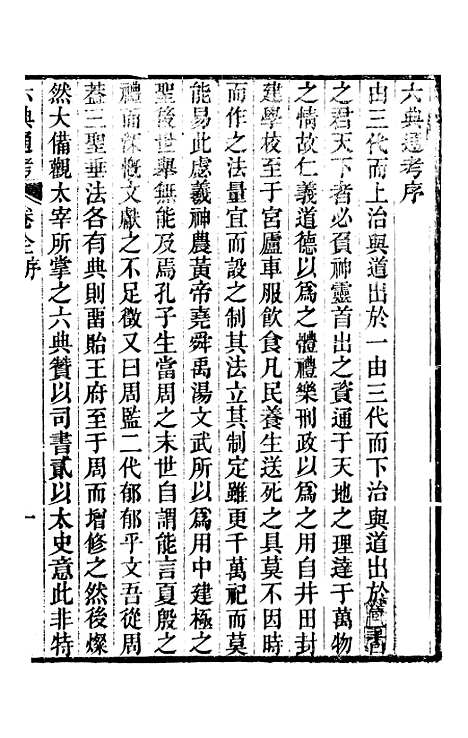 六典通考序
由三代而上治與道出於一由三代而下治與道出於
之君天下者必負神靈首出之資通于天地之理達于萬物
之情故仁義道德以爲之體禮樂刑政以爲之用自井田封
建學校至于宮廬車服飲食凡民養生送死之具莫不因時
而作之法量宜而設之制其法立其制定雖更千萬祀而莫
能易此虙羲神農黃帝堯舜禹湯文武所以爲用中建極之
聖後世舉無能及焉孔子生當周之末世自謂能言夏殷之
禮而深慨文獻之不足徵又曰周監二代郁郁乎文吾從周
葢三聖垂法各有典則畱貽王府至于周而增修之然後燦
然大備觀太宰所掌之六典贊以司書貳以太史意此非特
六典通考 卷全序 一